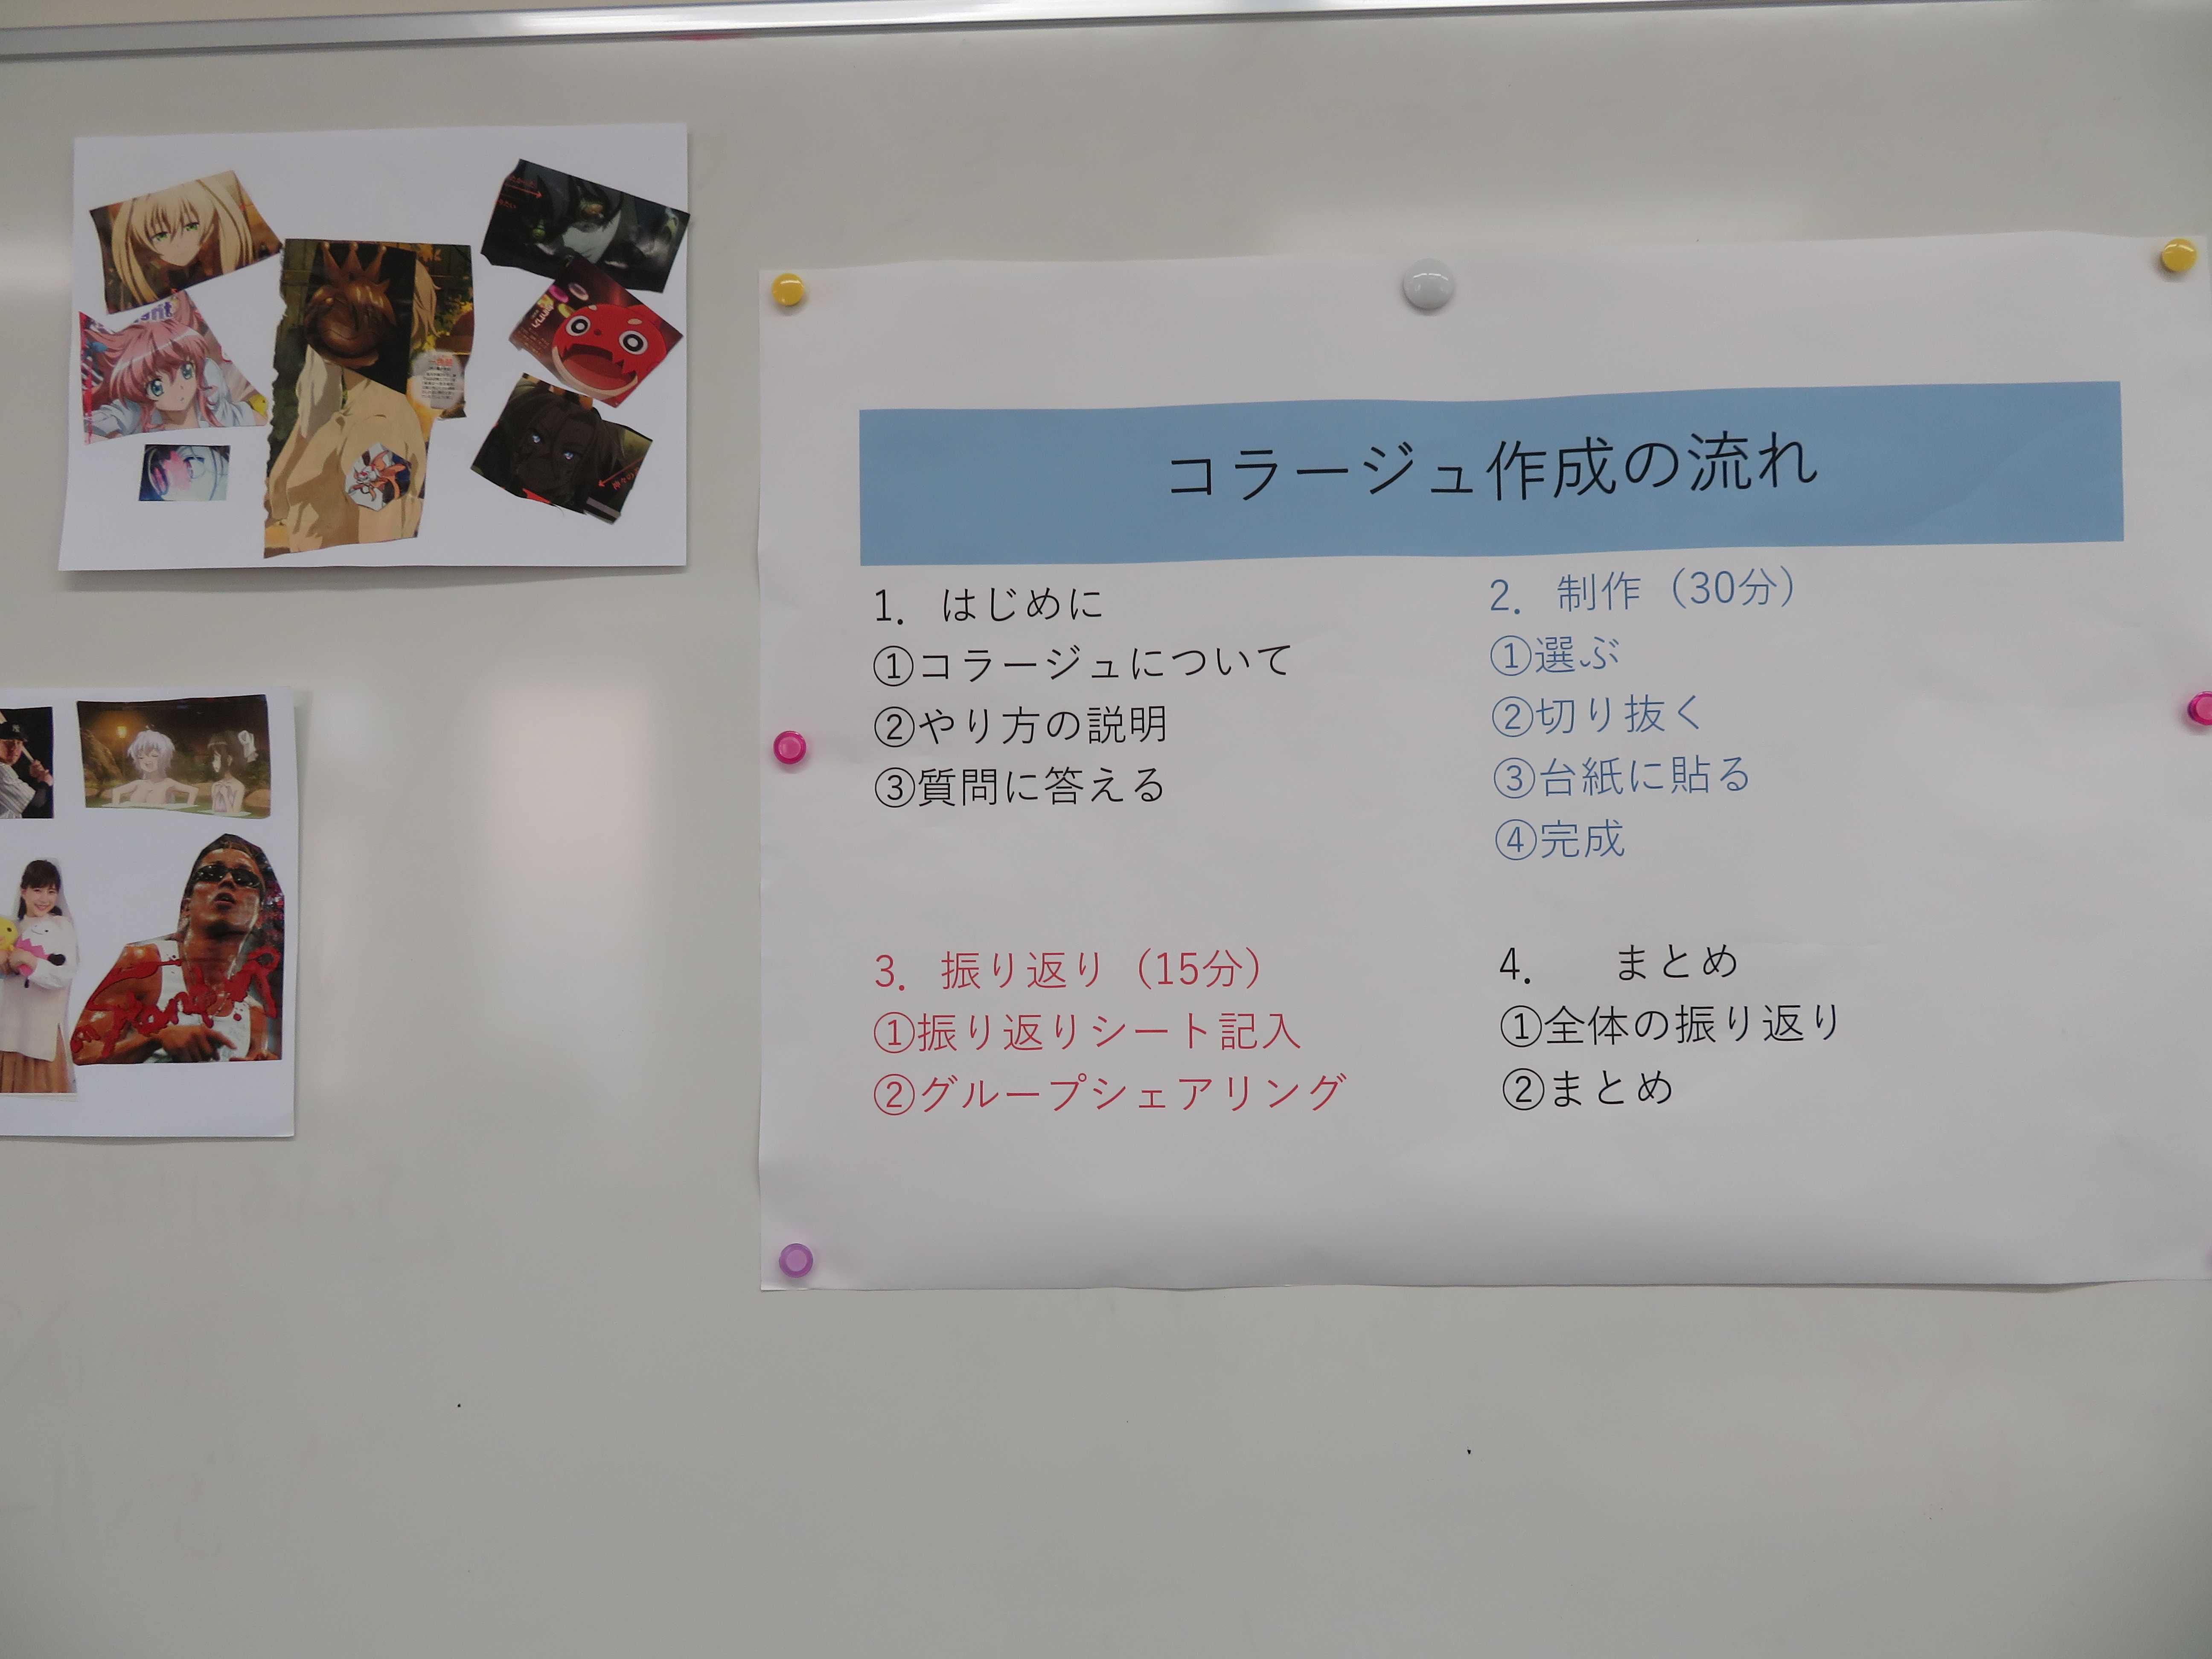 コラージュ作成の流れ
1. はじめに
①コラージュについて
②やり方の説明
③質問に答える
2. 制作（30分）
①選ぶ
②切り抜く
③台紙に貼る
④完成
3. 振り返り（15分）
①振り返りシート記入
②グループシェアリング
4. まとめ
①全体の振り返り
②まとめ